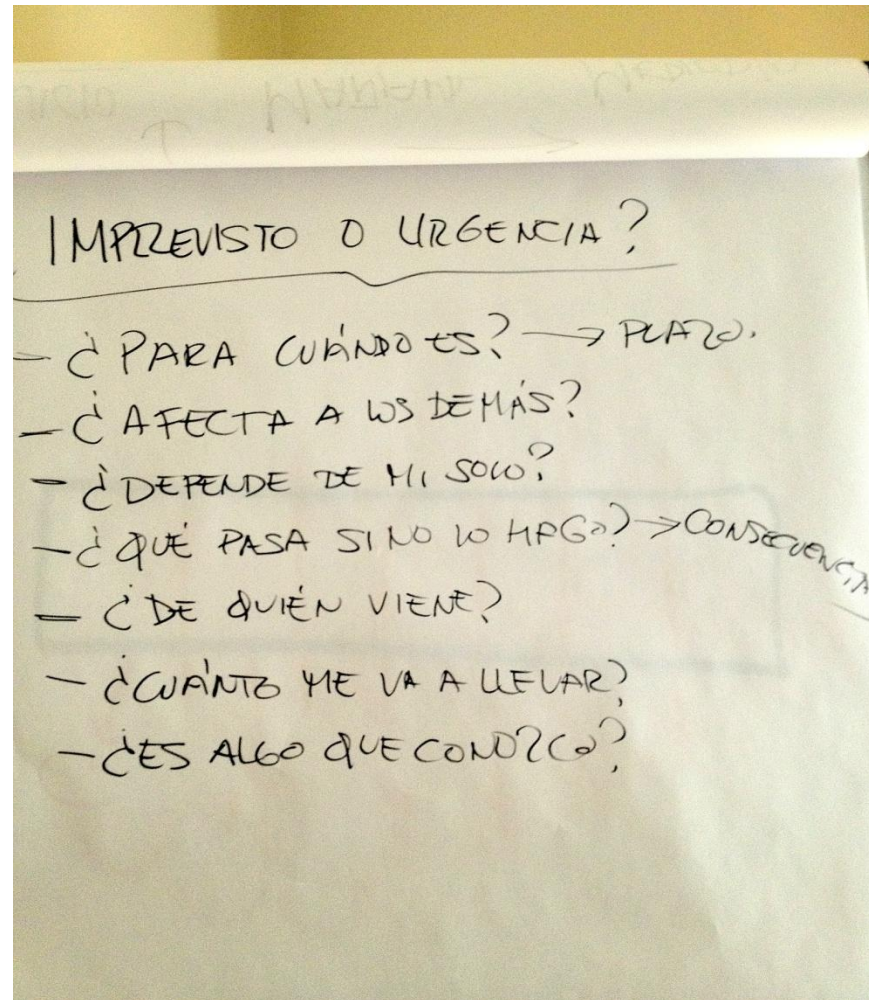 IMPREVISTO O URGENCIA?
- ¿PARA CUÁNDO ES? → PLAZO.
- ¿AFECTA A LOS DEMÁS?
- ¿DEPENDE DE MI SOLO?
- ¿QUÉ PASA SI NO LO HAGO? → CONSECUENCIA
- ¿DE QUIÉN VIENE?
- ¿CUÁNTO ME VA A LLEVAR?
- ¿ES ALGO QUE CONOZCO?